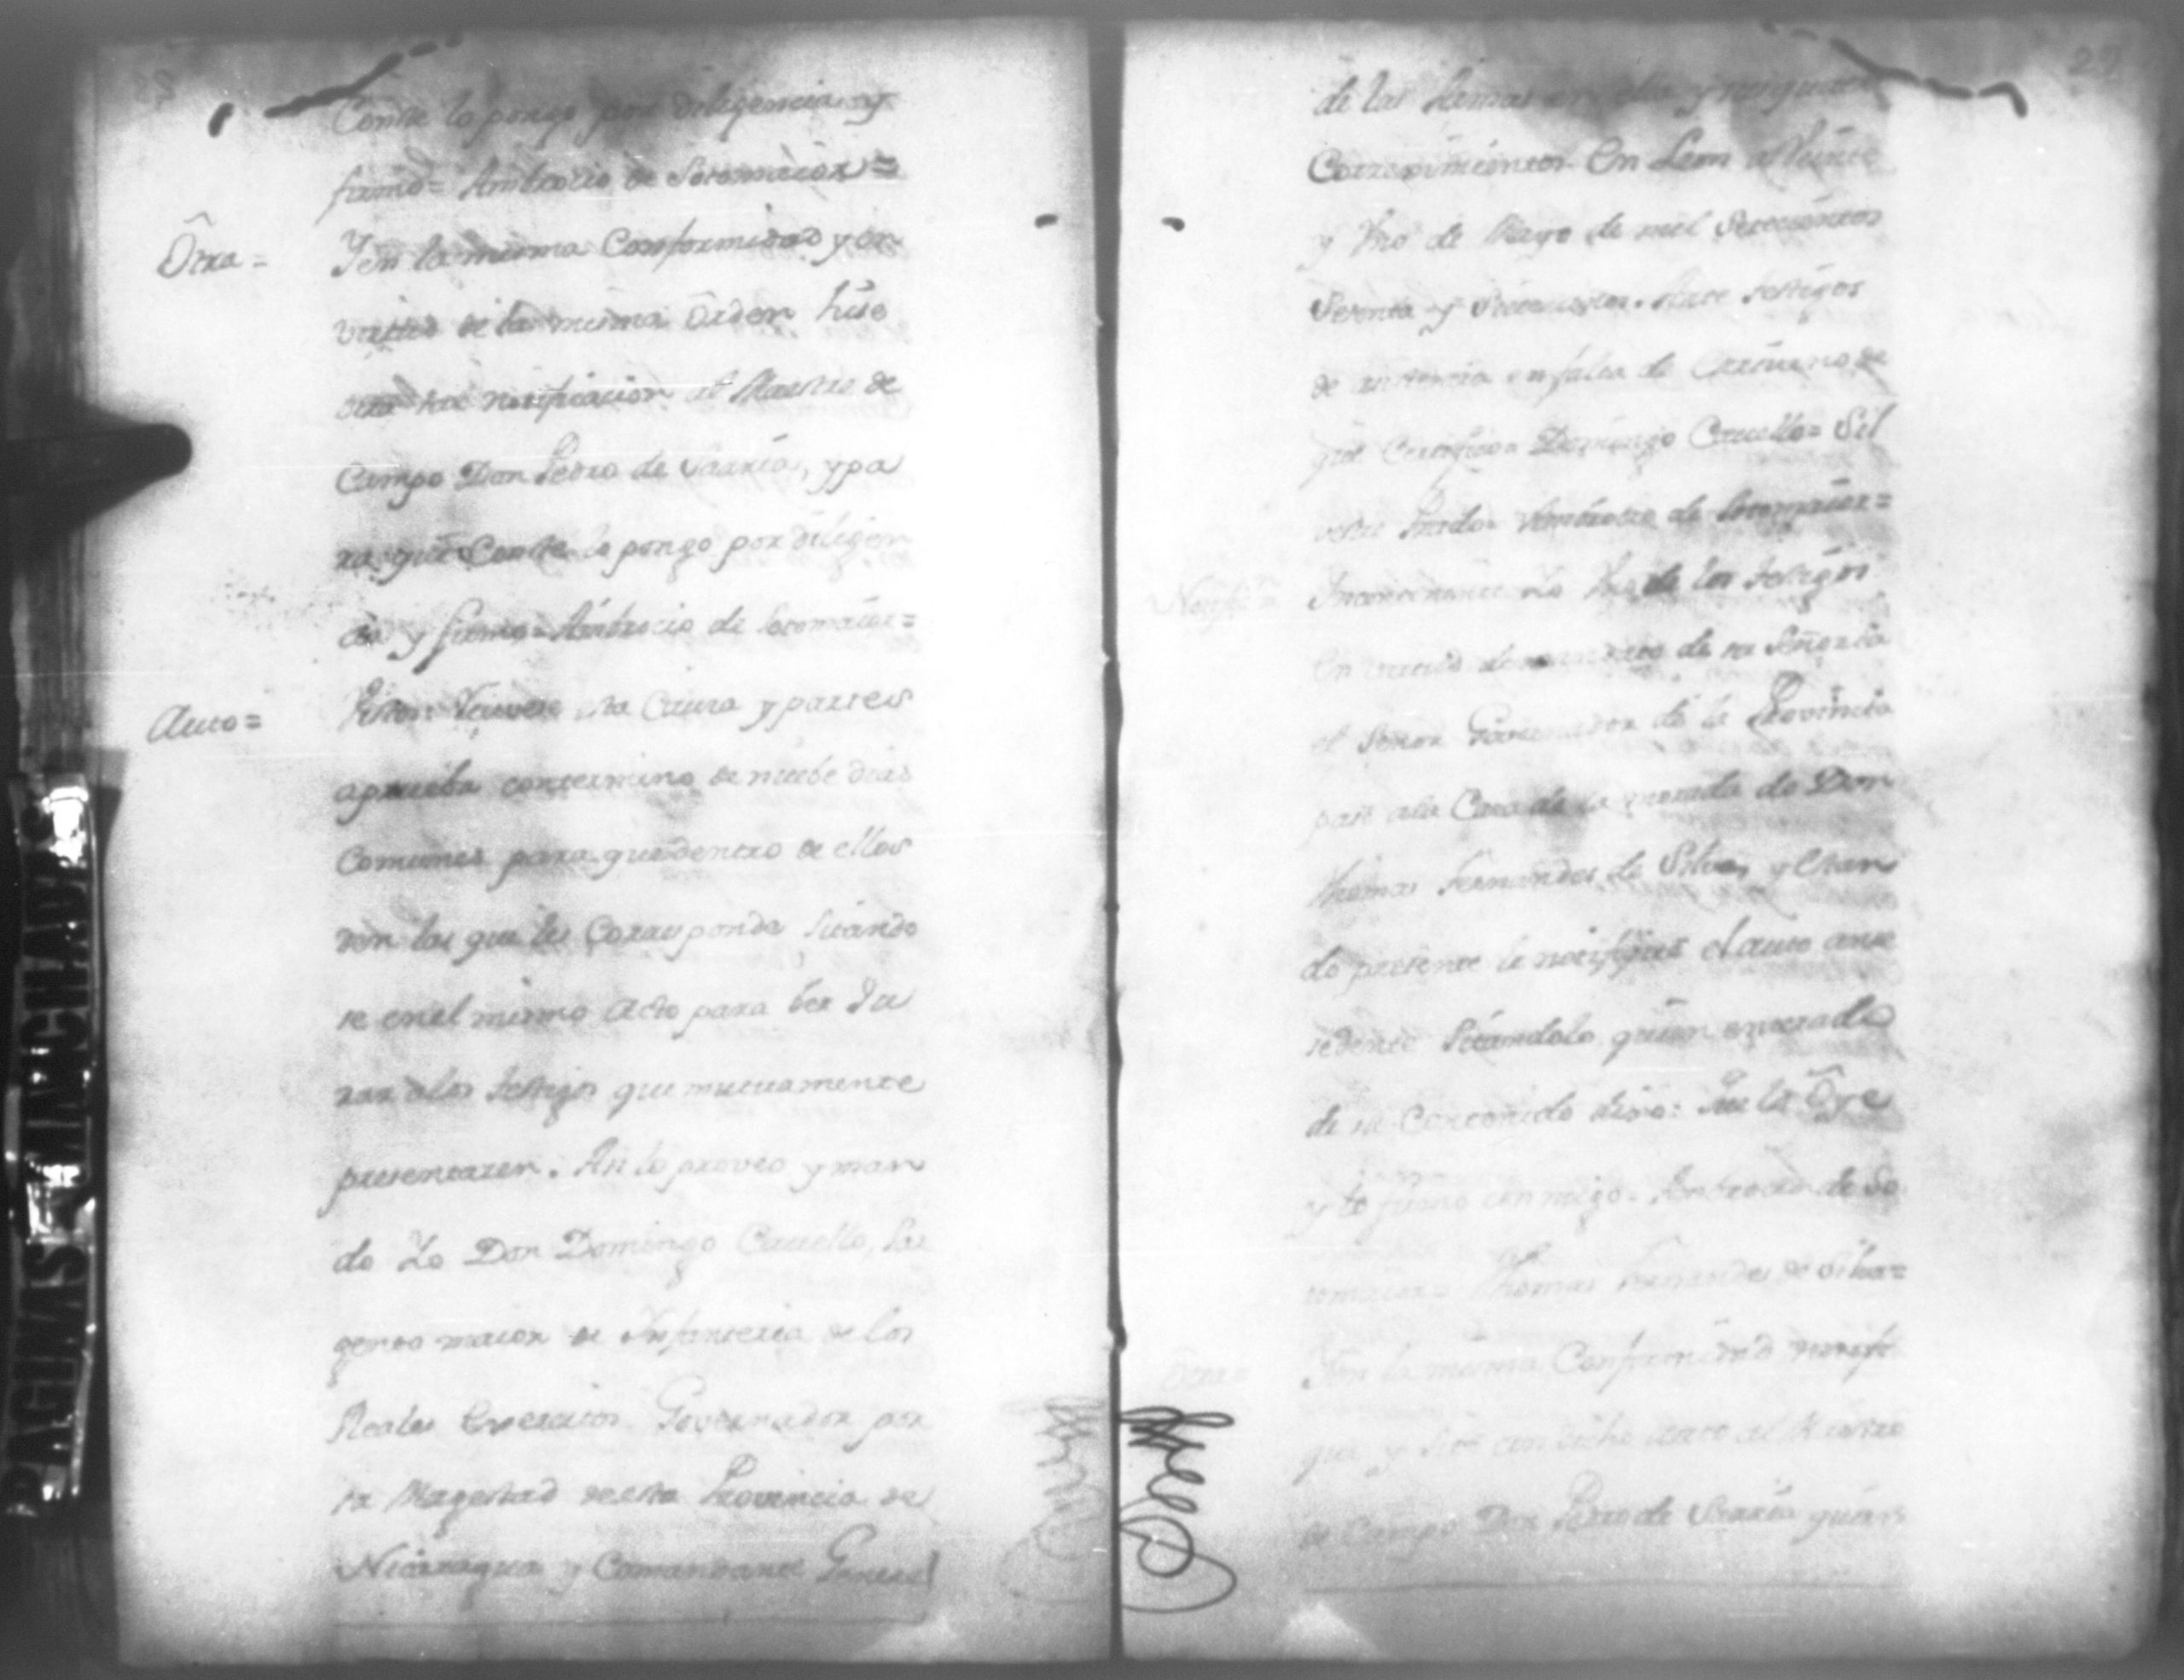 Conste lo pongo por diligencia y
firmo= Ambrocio de Sotomaior=
Ôtra=
Y en la misma Conformidad y en
virtud de la misma Ôrden hise
otra tal notificacion al Maestre de
Campo Don Pedro de Uxaxía, y pa
ra que Conste lo pongo por diligen
cia y firmo= Ambrocio de Sotomaior=
Auto=
Vistos: esta Causa y partes
aprueba con termino de nuebe dias
Comunes para que dentro de ellos
den las que les Corresponda Sitando
se en el mismo Acto para ber Ju
rar a los testigos que mutuamente
presentaren. Asi lo proveo y man
do Yo Don Domingo Cauello, Sar
gento maior de Ynfanteria de los
Reales Exercitos Governador por
su Magestad de esta Provincia de
Nicaragua y Comandante General
29
de las Armas en ella y
Corregimientos. En Leon a Veinte
y Uno de Mayo de mil Setecientos
Setenta y Ante testigos
de asistencia en falta de Escriuano de
que Certifico= Domingo Cauello= Sil
vestre Prado= Ambrocio de Sotomaior=
Yncontinente Yo Uno de los testigos
en virtud de mandato de su Señoria
el Señor Governador de la Provincia
pasé a la Casa de la morada de Don
Thomas Fernandes de Silva, y estan
do presente le notifiqué el auto ante
sedente Sitandolo, quien enterado
de su Contenido dixo: Que lo Ôye
y lo firmó con migo= Ambrocio de So
tomaior= Thomas Fernandes de Silva=
Ôtra=
Y en la misma Conformidad notifi
qué y Sité con dicho auto al Maestre
de Campo Don Pedro de Uxaxía quien